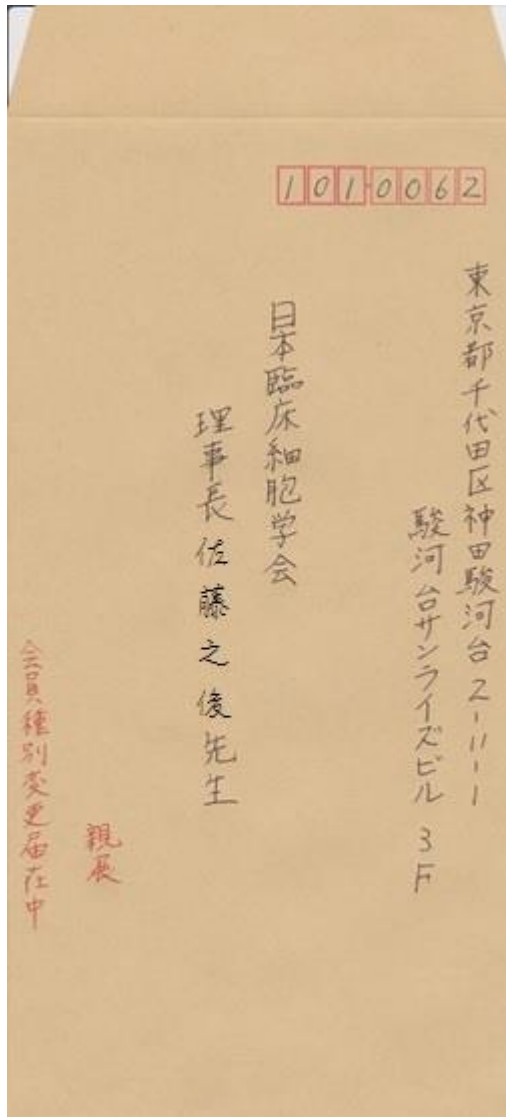 1010062
東京都千代田区神田駿河台2-11-1
駿河台サンライズビル 3F
日本臨床細胞学会
理事長佐藤之俊先生
親展
会員種別変更届在中